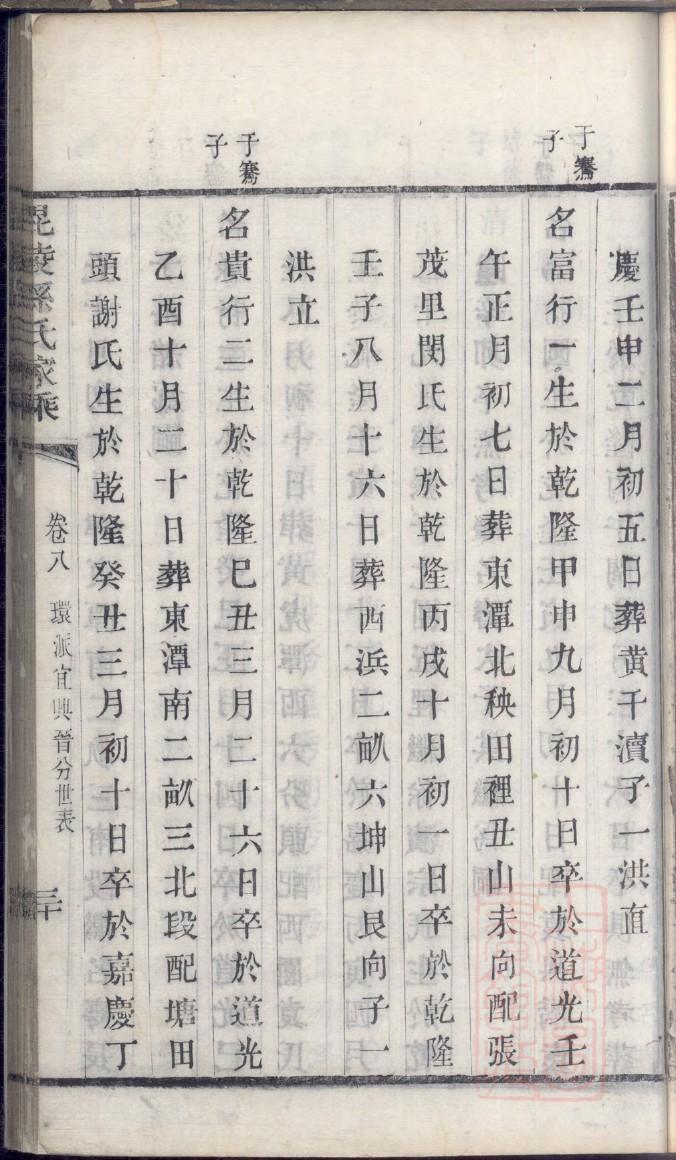 慶壬申二月初五日葬黄干瀆子一洪直
于騫
子
名富行一生於乾隆甲申九月初十日卒於道光壬
午正月初七日葬東潭北秧田裡丑山未向配張
茂里閔氏生於乾隆丙戌十月初一日卒於乾隆
壬子八月十六日葬西浜二畝六坤山艮向子一
洪立
于騫
子
名貴行二生於乾隆己丑三月二十六日卒於道光
乙酉十月二十日葬東潭南二畝三北段配塘田
頭謝氏生於乾隆癸丑三月初十日卒於嘉慶丁
毘陵孫氏家乘
卷八 環派宜興晉分世表
三十